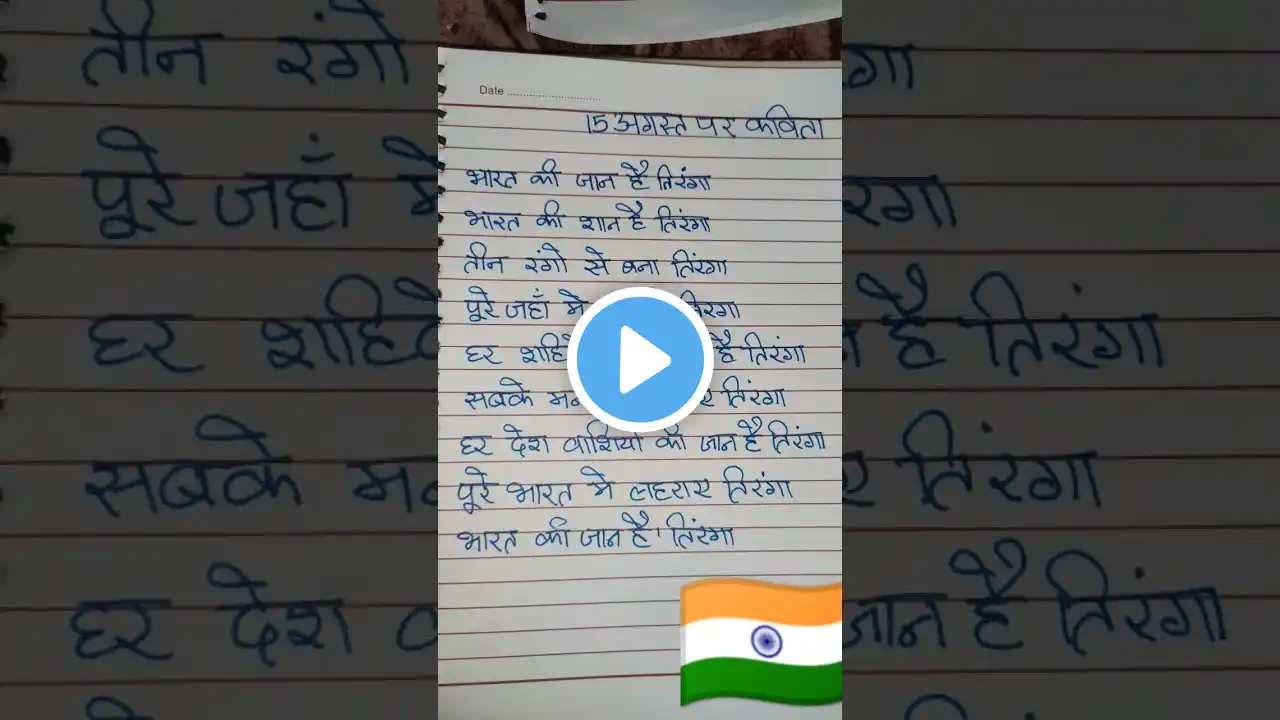 Date
15 अगस्त पर कविता
भारत की जान है तिरंगा
भारत की शान है तिरंगा
तीन रंगो से बना तिरंगा
पूरे जहाँ मे तिरगा
हर है तिरंगा
सबके तिरंगा
हर देश वाशियो की जान है तिरंगा
पूरे भारत मे लहराए तिरंगा
भारत की जान है तिरंगा